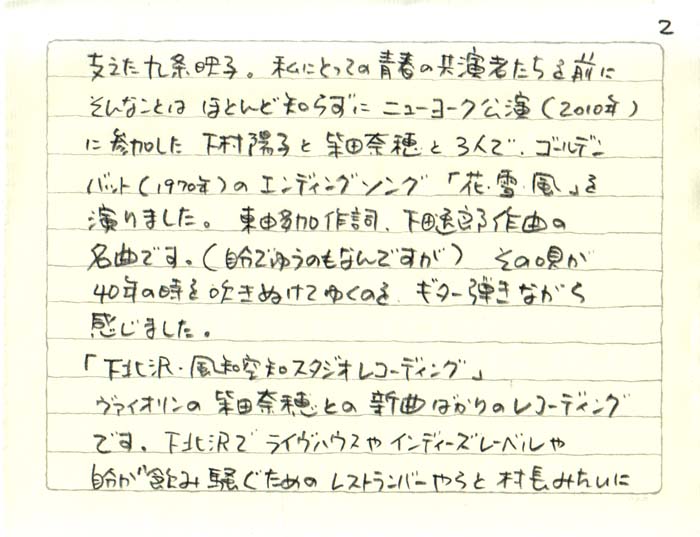 2
支えた九条映子。私にとっての青春の共演者たちを前に
そんなことは ほとんど知らずに ニューヨーク公演(2010年)
に参加した 下村陽子と 柴田奈穂と 3人で、ゴールデン
バット(1970年)の エンディングソング 「花・雪・風」を
演りました。 東由多加作詞、下田逸郎作曲の
名曲です。(自分でゆうのもなんですが) その唄が
40年の時を 吹きぬけてゆくのを ギター弾きながら
感じました。
「下北沢・風知空知スタジオレコーディング」
ヴァイオリンの 柴田奈穂との 新曲ばかりのレコーディング
です。下北沢で ライヴハウスや インディーズレーベルや
自分が飲み騒ぐための レストランバーやらと 村長みたいに